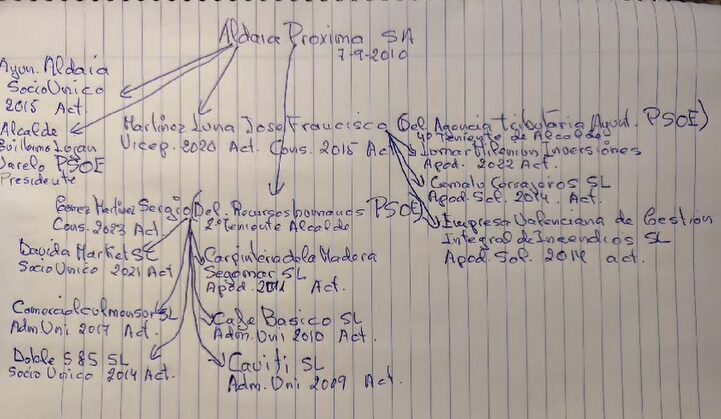 Aldaia Proxima SA
7-9-2010
Ayun. Aldaia
Socio Unico
2015 Act.
Alcalde
Guillermo Lujan
Varelo PSOE
Presidente
Martinez Luna Jose Francisco (Del. Agencia tributaria Ayunt. PSOE)
Vicep. 2020 Act. Cons. 2015 Act
4º Teniente de Alcalde
Inversiones
Apod. 2022 Act.
Cerrajeros SL
Apod. Sol. 2014. Act.
Empresa Valenciana de Gestion
Integral de Incendios SL
Apod. Sol. 2014 act.
Gomez Martinez Sergio (Del. Recursos humanos PSOE)
Cons. 2023 Act.
2º Teniente Alcalde
Davida Market SL
Socio Unico 2021 Act
Carpinteria de la Madera
Segomar SL
Apod. 2011 Act.
SL
Adm. Uni 2017 Act.
Cafe Basico SL
Adm. Uni 2010 Act.
Doble S&S SL
Socio Unico 2014 Act.
Caviti SL
Adm. Uni 2009 Act.